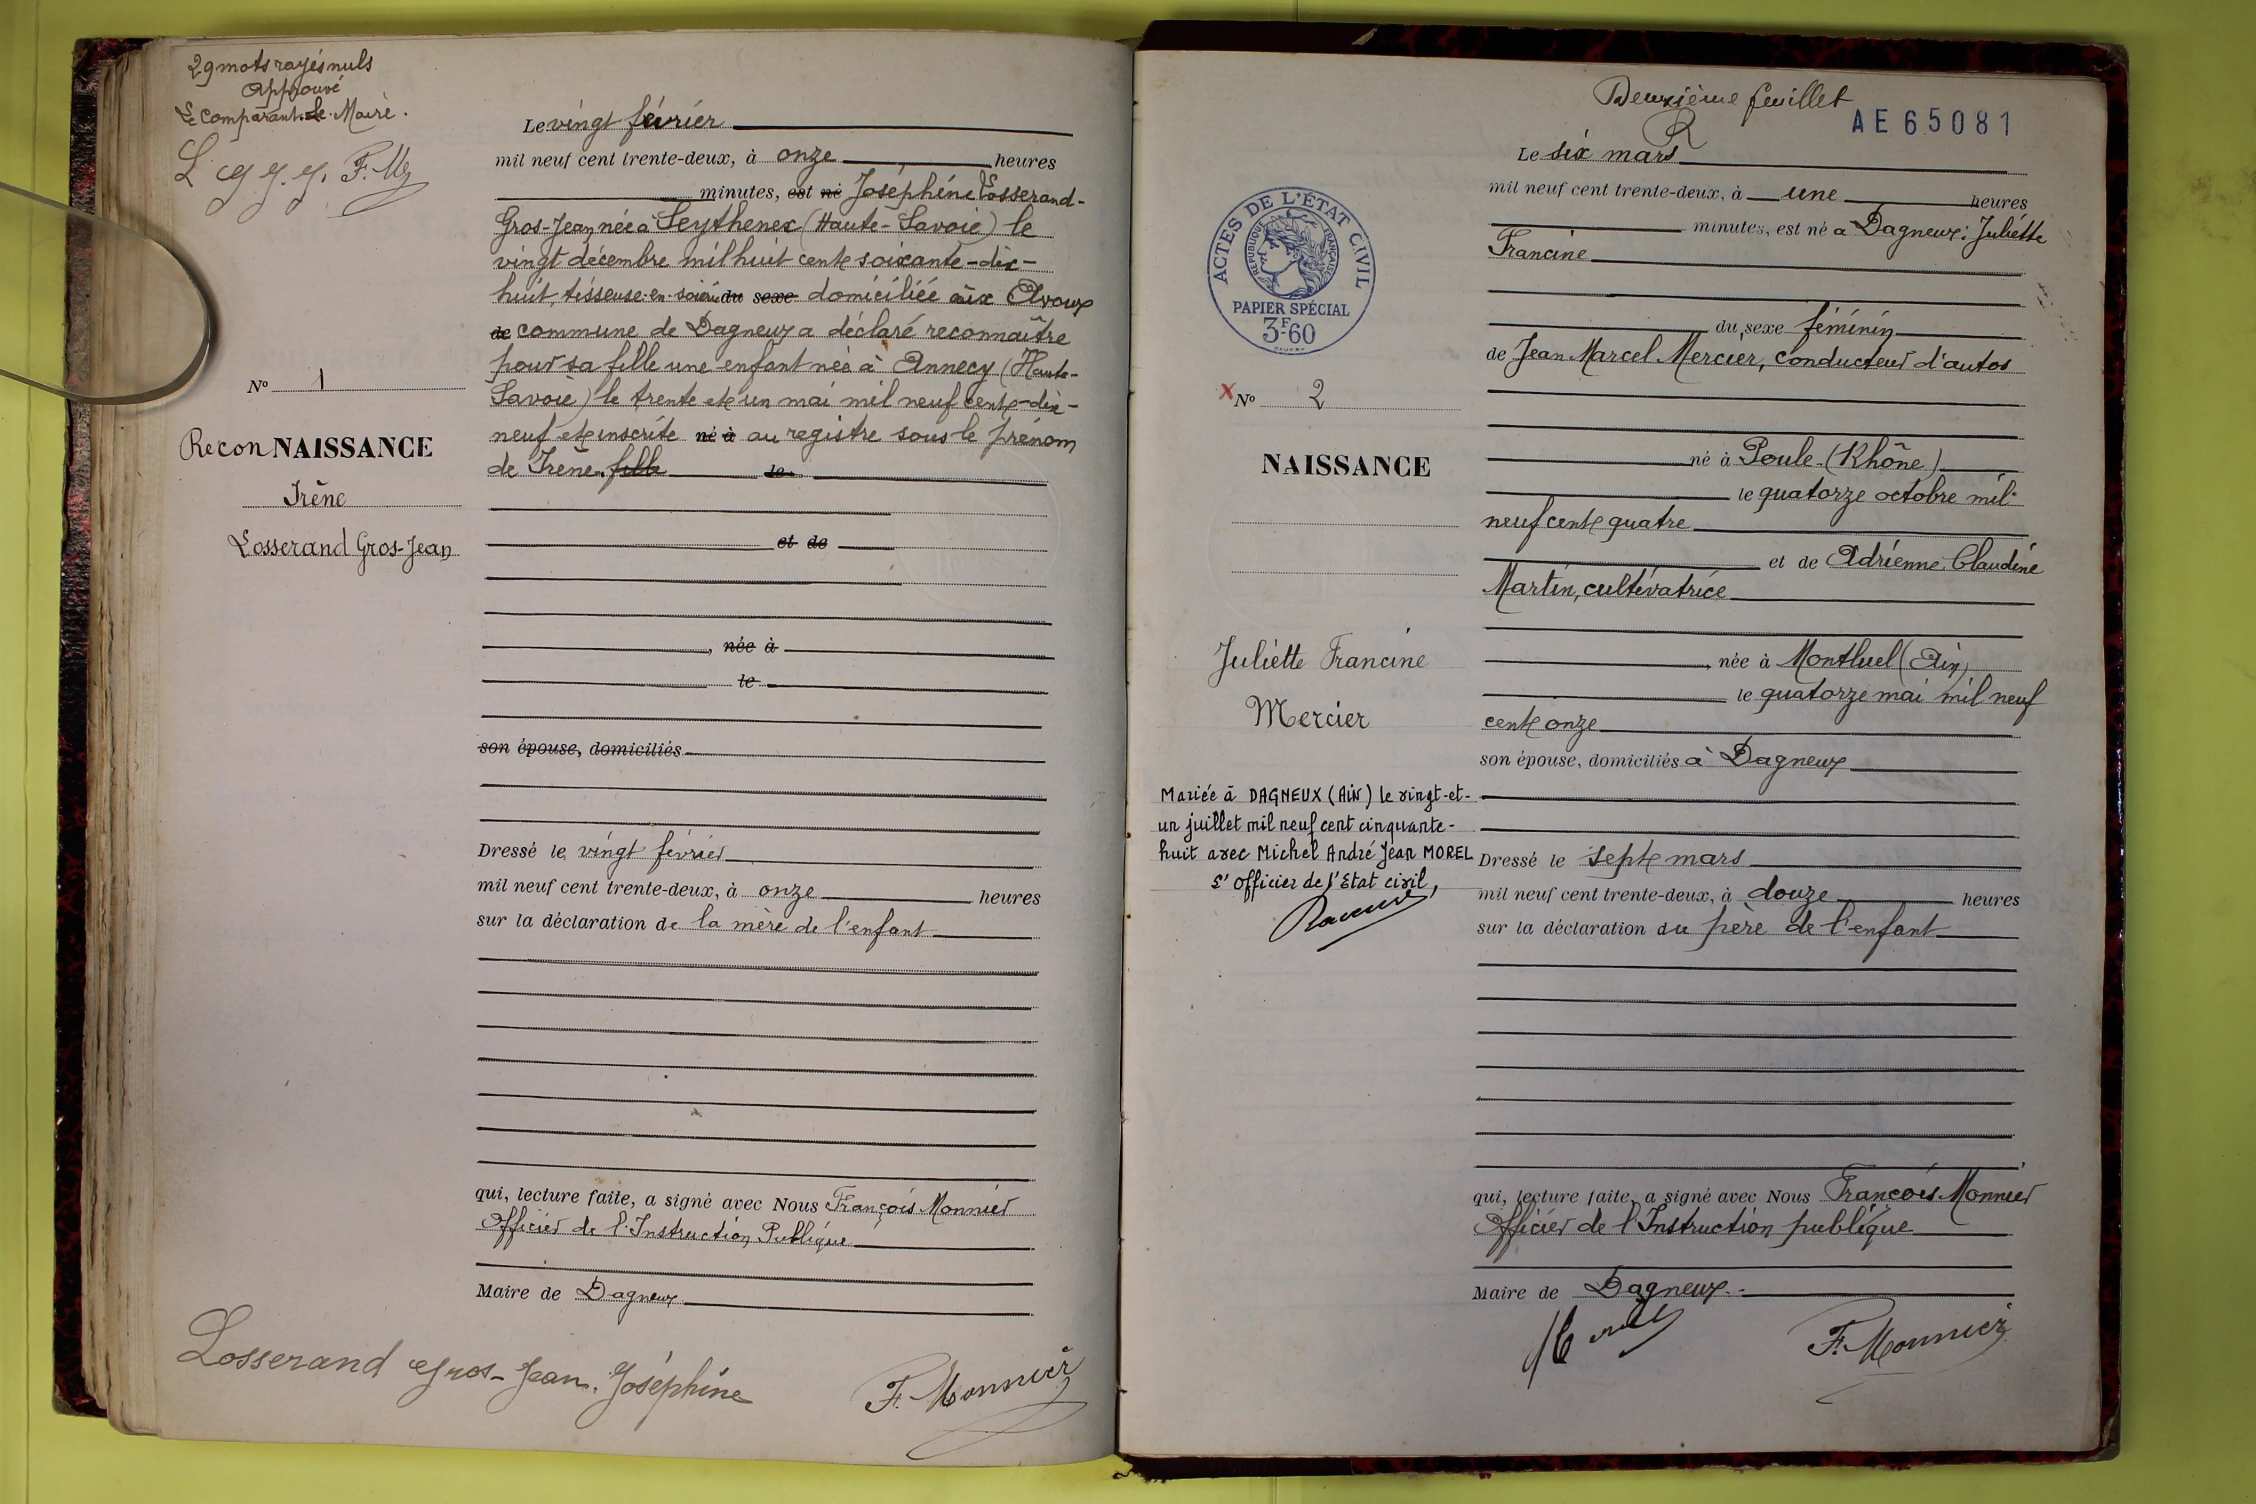 29 mots rayés nuls
Approuvé
Le comparant. Le Maire.
L G. J. J. F. M
Le vingt février
mil neuf cent trente-deux, à onze heures
minutes, est né Joséphine Losserand-
Gros-Jean née à Seythenex (Haute-Savoie) le
vingt décembre mil huit cent soixante-dix-
huit, tisseuse en soierie du sexe domiciliée aux
de commune de Dagneux a déclaré reconnaître
pour sa fille une enfant née à Annecy (Haute-
Savoie) le trente et un mai mil neuf cent-dix-
neuf et inscrite né à au registre sous le prénom
de Irène. fille le
et de
, née à
le
son épouse, domiciliés
Nº 1
Recon NAISSANCE
Irène
Losserand Gros-Jean
Dressé le vingt février
mil neuf cent trente-deux, à onze heures
sur la déclaration de la mère de l'enfant
qui, lecture faite, a signé avec Nous François Monnier
Officier de l'Instruction Publique
Maire de Dagneux
Losserand Gros-Jean. Joséphine
F. Monnier
Deuxième feuillet
AE 65081
ACTES DE L'ÉTAT CIVIL
RÉPUBLIQUE FRANÇAISE
PAPIER SPÉCIAL
3F60
Le six mars
mil neuf cent trente-deux, à une heures
minutes, est né a Dagneux: Juliette
Francine
du sexe féminin
de Jean Marcel Mercier, conducteur d'autos
né à Poule (Rhône)
le quatorze octobre mil
neuf cent quatre
et de Adrienne Claudine
Martin, cultivatrice
, née à Montluel (Ain)
le quatorze mai mil neuf
cent onze
son épouse, domiciliés à Dagneux
x Nº 2
NAISSANCE
Juliette Francine
Mercier
Mariée à DAGNEUX (Ain) le vingt-et-
un juillet mil neuf cent cinquante-
huit avec Michel André Jean MOREL
L'officier de l'Etat civil,
Dressé le sept mars
mil neuf cent trente-deux, à douze heures
sur la déclaration du père de l'enfant
qui, lecture faite, a signé avec Nous François Monnier
Officier de l'Instruction publique
Maire de Dagneux
F. Monnier